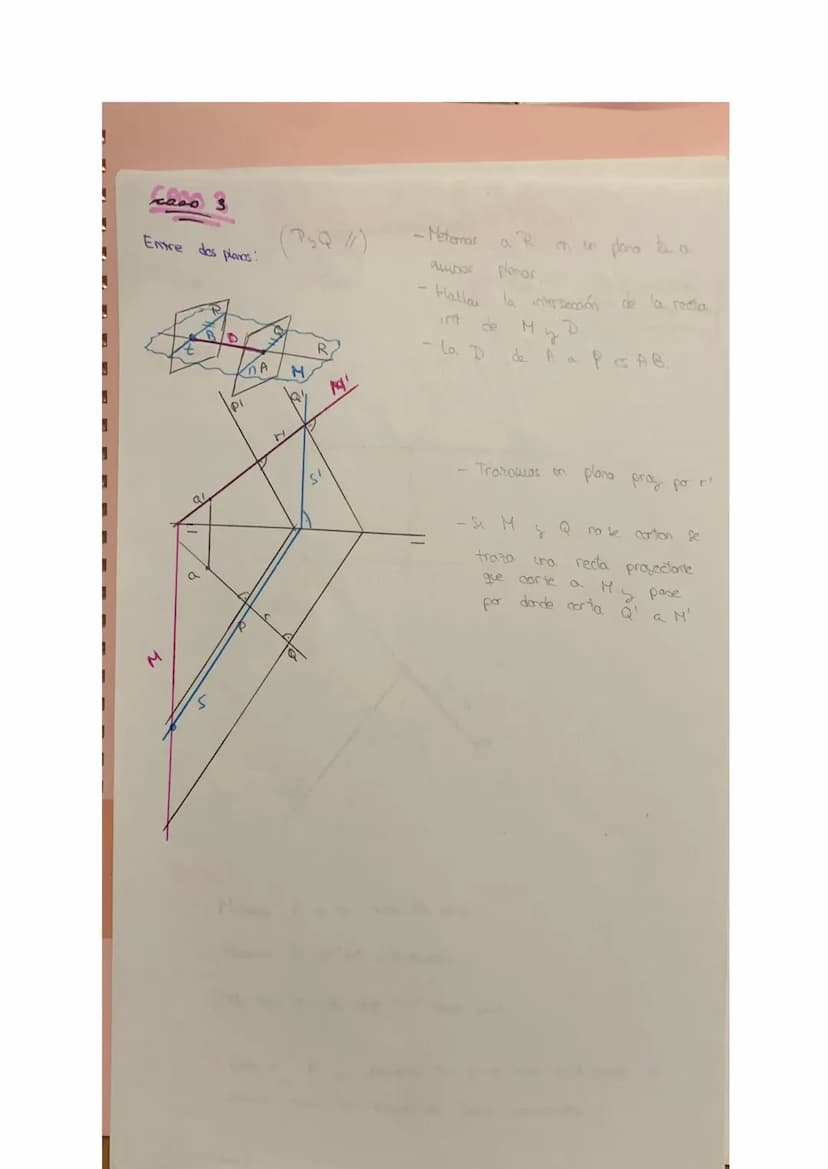 caso 3
Entre dos planos: (P y Q //)
- Metemos a R en un plano a
ambos planos
- Hallas la intersección de la recta
int de M y D
- La D de A a P es AB.
P
B
D
Q
R
t
n A
M
P'
Q'
M'
r'
S'
a'
a
r
P
Q
M
S
- Trazamos un plano proy por r'
- Si M y Q no se cortan se
traza una recta proyectante
que corte a M y pase
por donde corta Q' a M'